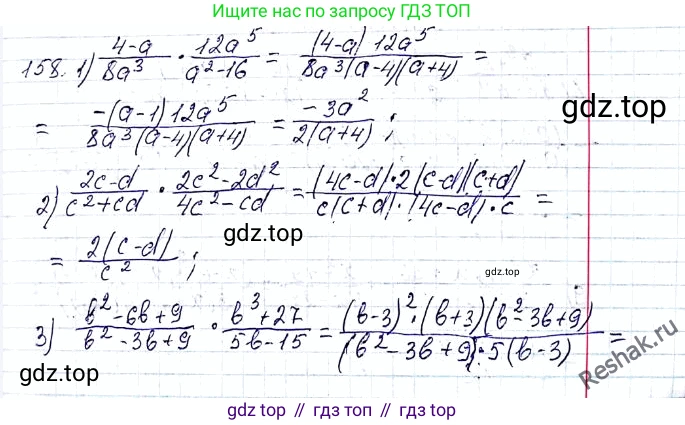 Ищите нас по запросу ГДЗ ТОП
158. 1) \frac{4-a}{8a^3} \cdot \frac{12a^5}{a^2-16} = \frac{(4-a) 12a^5}{8a^3(a-4)(a+4)} =
= \frac{-(a-1) 12a^5}{8a^3(a-4)(a+4)} = \frac{-3a^2}{2(a+4)};
gdz.top
2) \frac{2c-d}{c^2+cd} \cdot \frac{2c^2-2d^2}{4c^2-cd} = \frac{(4c-d) \cdot 2(c-d)(c+d)}{c(c+d) \cdot (4c-d) \cdot c} =
= \frac{2(c-d)}{c^2};
gdz.top
gdz.top
3) \frac{b^2-6b+9}{b^2-3b+9} \cdot \frac{b^3+27}{5b-15} = \frac{(b-3)^2 \cdot (b+3)(b^2-3b+9)}{(b^2-3b+9) \cdot 5(b-3)} =
gdz.top
Reshak.ru
gdz.top // гдз топ // гдз.top